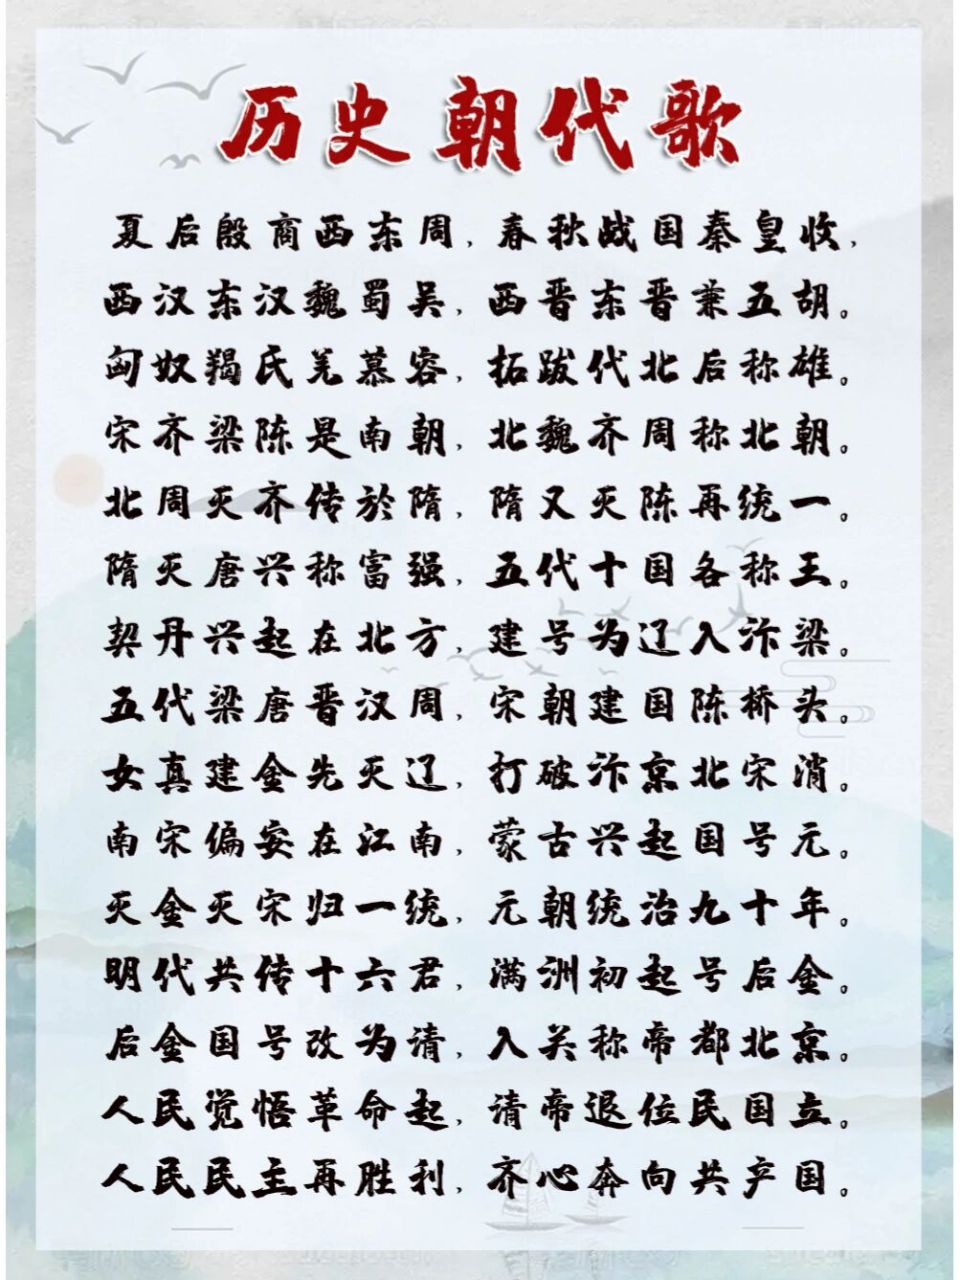 历史朝代歌
夏后殷商西东周，春秋战国秦皇收，
西汉东汉魏蜀吴，西晋东晋兼五胡。
匈奴羯氏羌慕容，拓跋代北后称雄。
宋齐梁陈是南朝，北魏齐周称北朝。
北周灭齐传於隋，隋又灭陈再统一。
隋灭唐兴称富强，五代十国各称王。
契丹兴起在北方，建号为辽入汴梁。
五代梁唐晋汉周，宋朝建国陈桥头。
女真建金先灭辽，打破汴京北宋消。
南宋偏安在江南，蒙古兴起国号元。
灭金灭宋归一统，元朝统治九十年。
明代共传十六君，满洲初起号后金。
后金国号改为清，入关称帝都北京。
人民觉悟革命起，清帝退位民国立。
人民民主再胜利，齐心奔向共产国。